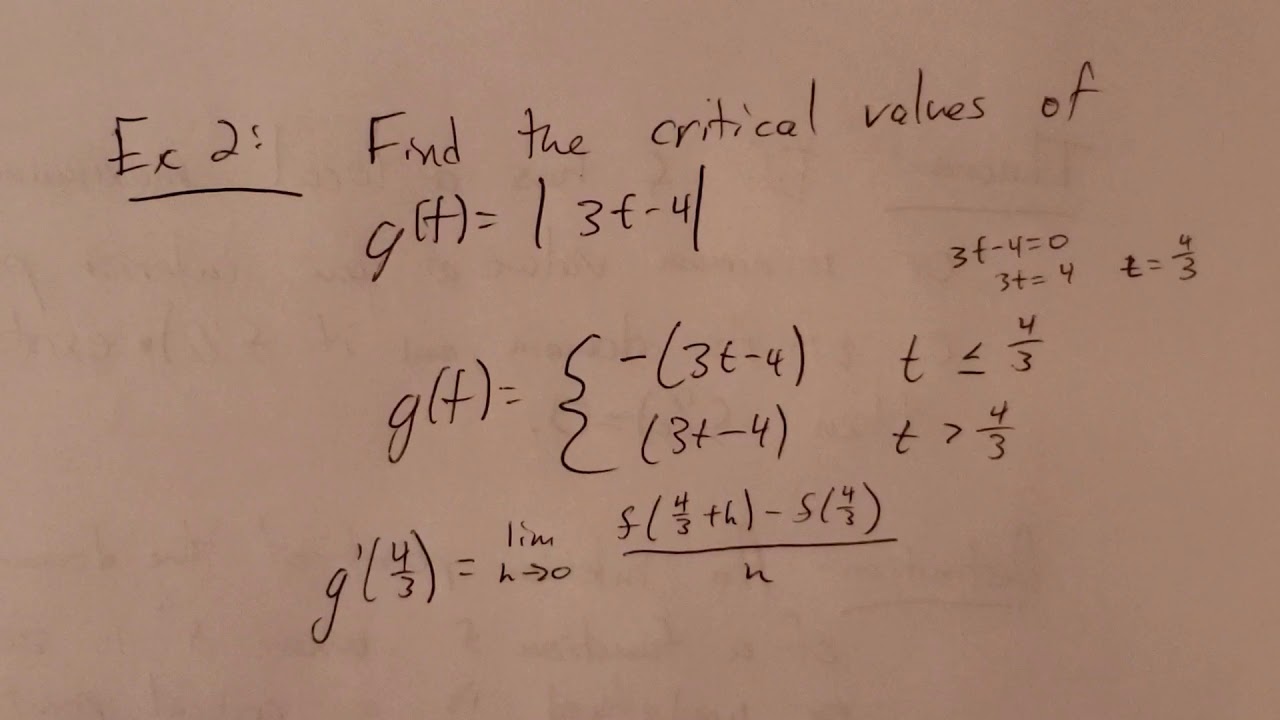 Ex 2: Find the critical values of
g(t) = | 3t-4 |
3t-4=0
3t=4 t=4/3
g(t) = { -(3t-4) t ≤ 4/3
(3t-4) t > 4/3
g'(4/3) = lim h→0 f(4/3 +h) - f(4/3) / h